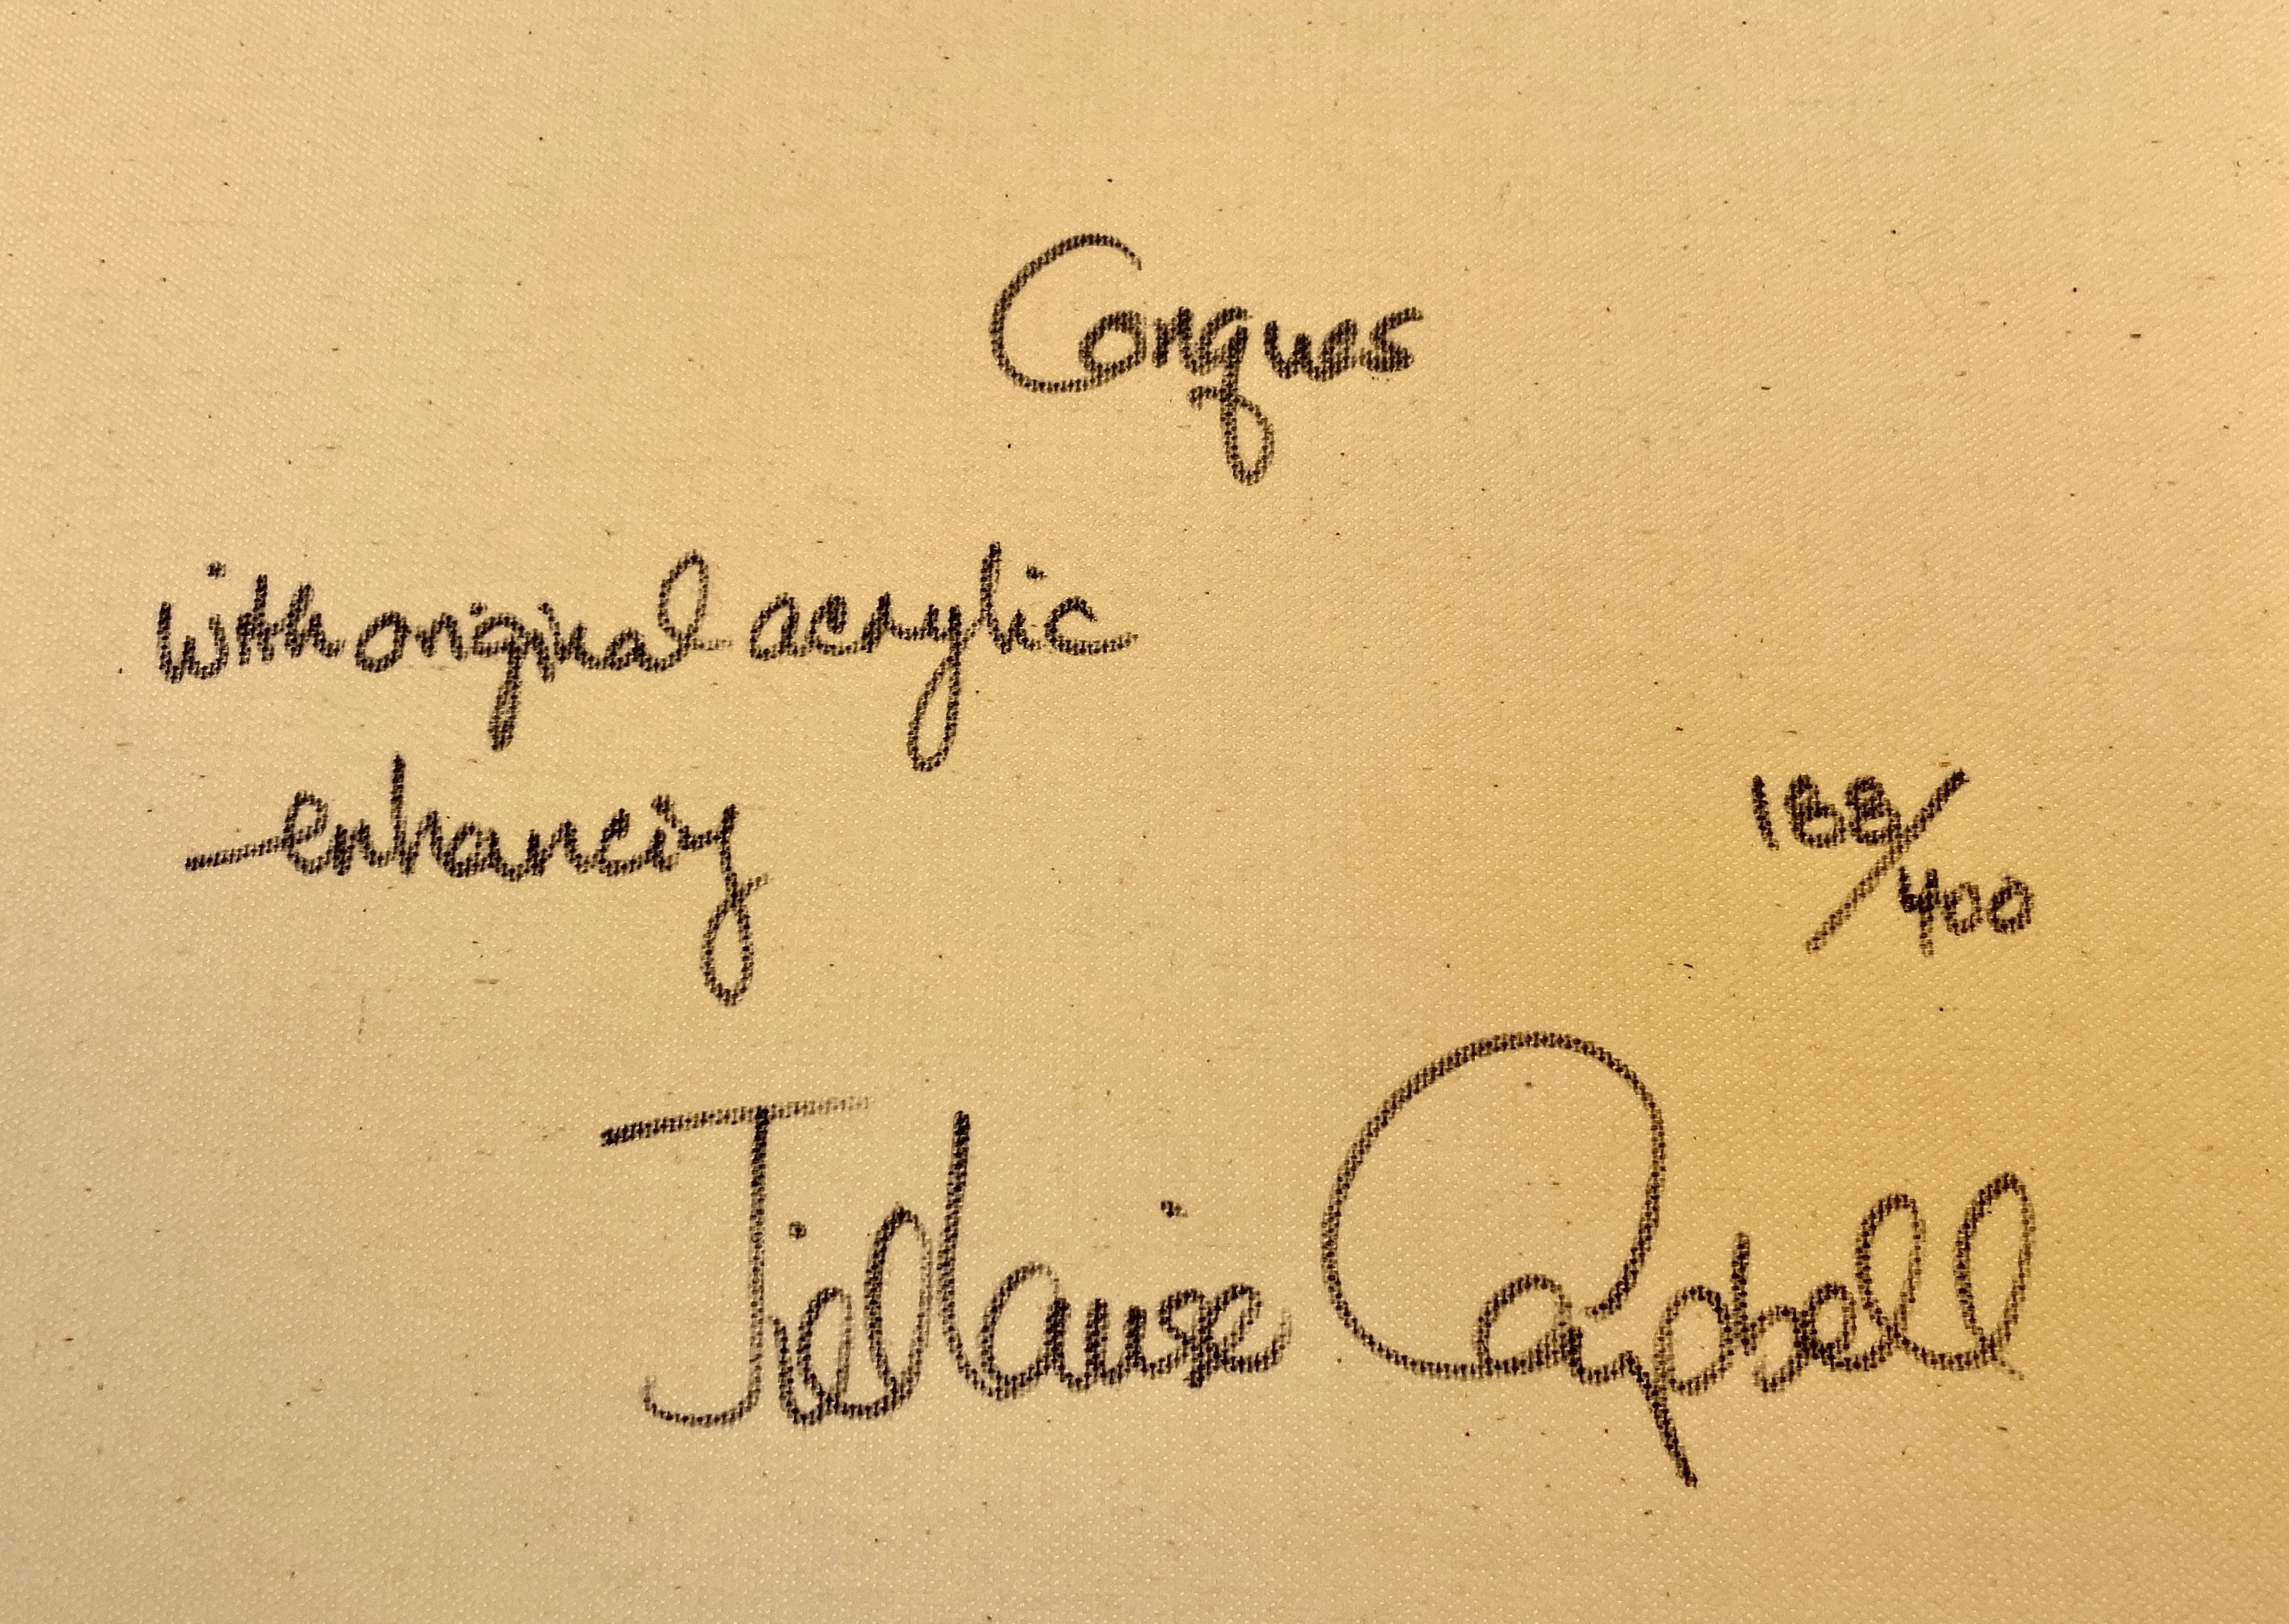 Conques
with original acrylic
enhancing
188/400
Jillaine Campbell